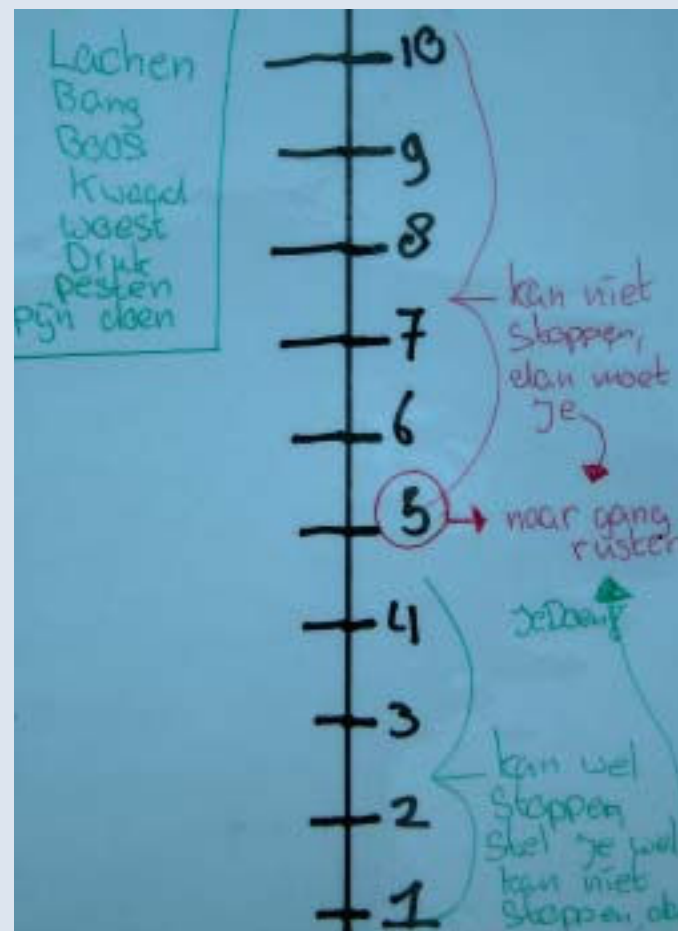 Lachen
Bang
Boos
Kwaad
woest
Druk
pesten
pijn doen
10
9
8
7
6
5
4
3
2
1
kan niet
stoppen,
dan moet
je
naar gang
rusten
kan wel
stoppen
stel je wel
kan niet
stoppen,